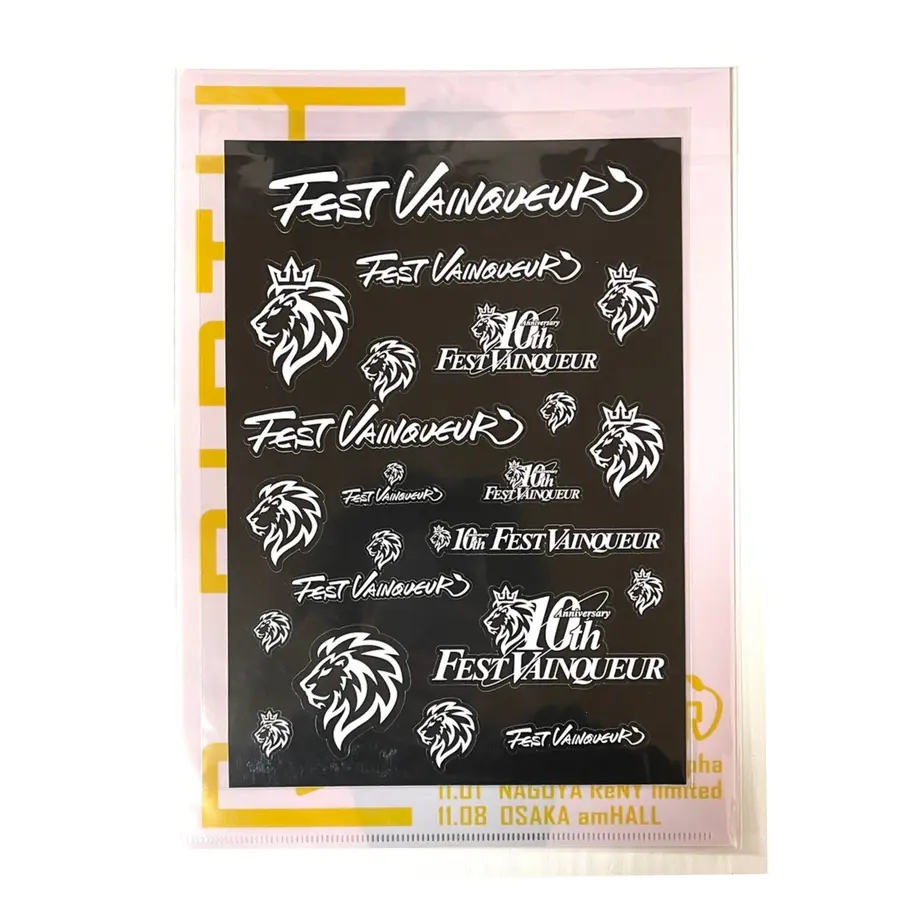 FEST VAINQUEUR
FEST VAINQUEUR
10th
Anniversary
FEST VAINQUEUR
FEST VAINQUEUR
FEST VAINQUEUR
10th
FEST VAINQUEUR
10th FEST VAINQUEUR
FEST VAINQUEUR
10th
Anniversary
FEST VAINQUEUR
FEST VAINQUEUR
pha
11.01 NAGOYA ReNY limited
11.08 OSAKA amHALL